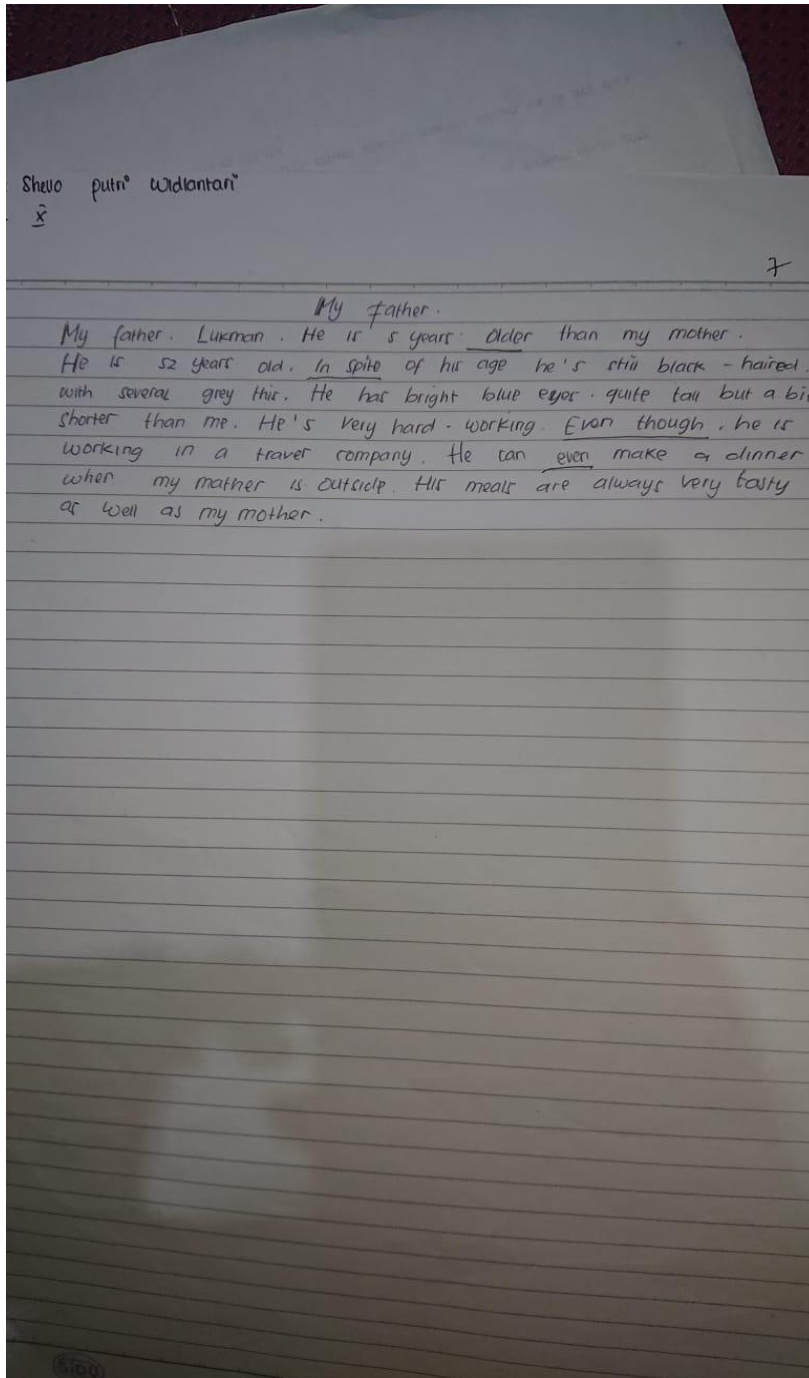 Shevo putri Widiantari
X
7
My Father.
My father. Lukman. He is 5 years older than my mother.
He is 52 years old. In spite of his age he's still black - haired.
with several grey this. He has bright blue eyes. quite tall but a bi
shorter than me. He's very hard - working. Even though, he is
working in a traver company. He can even make a dinner
when my mather is outside. His meals are always very tasty
as well as my mother.
SIDU